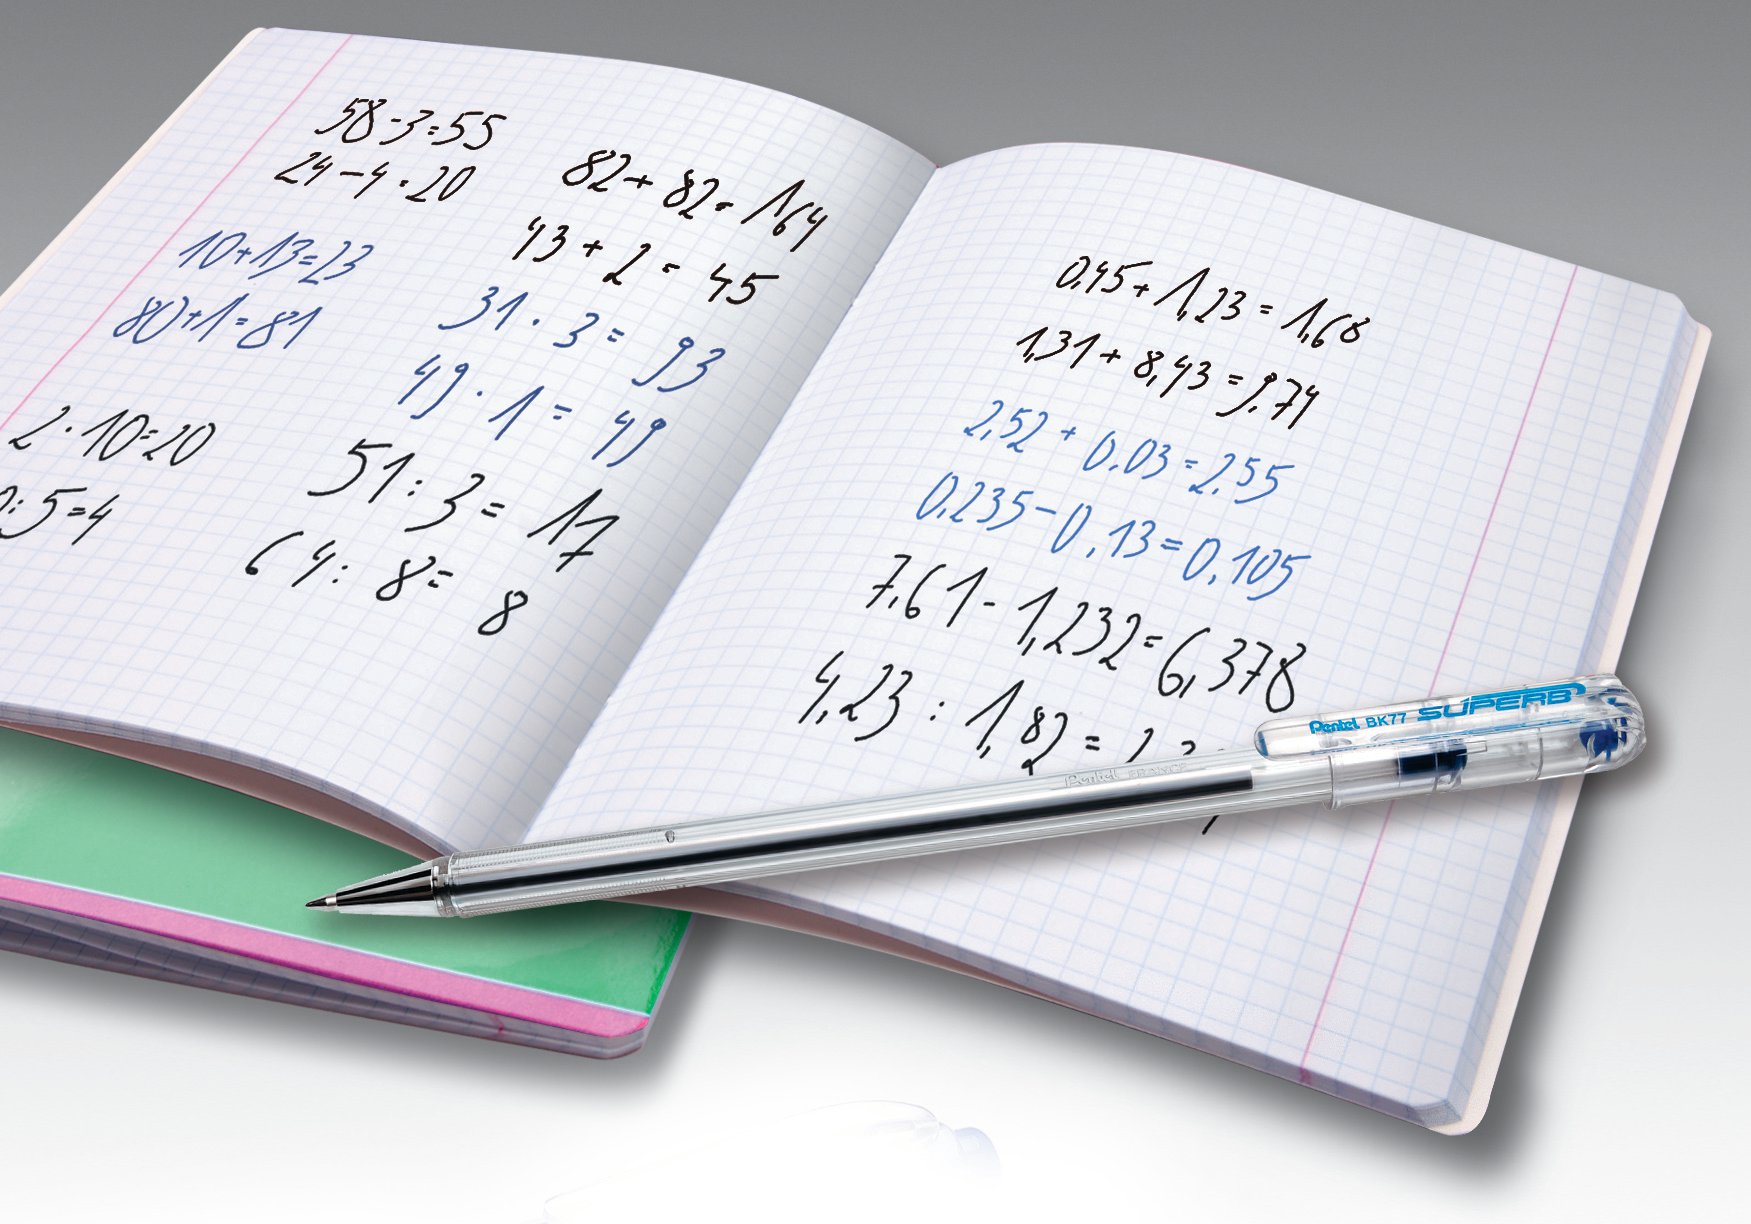 58-3=55
24-4=20
10+13=23
80+1=81
2·10=20
:5=4
82+82=164
43+2=45
31·3=93
49·1=49
51:3=17
64:8=8
0,45+1,23=1,68
1,31+8,43=9.74
2,52+0.03=2.55
0,235-0,13=0,105
7,61-1,232=6,378
4,23:1,82=
Pentel BK77 SUPERB
Pentel FRANCE